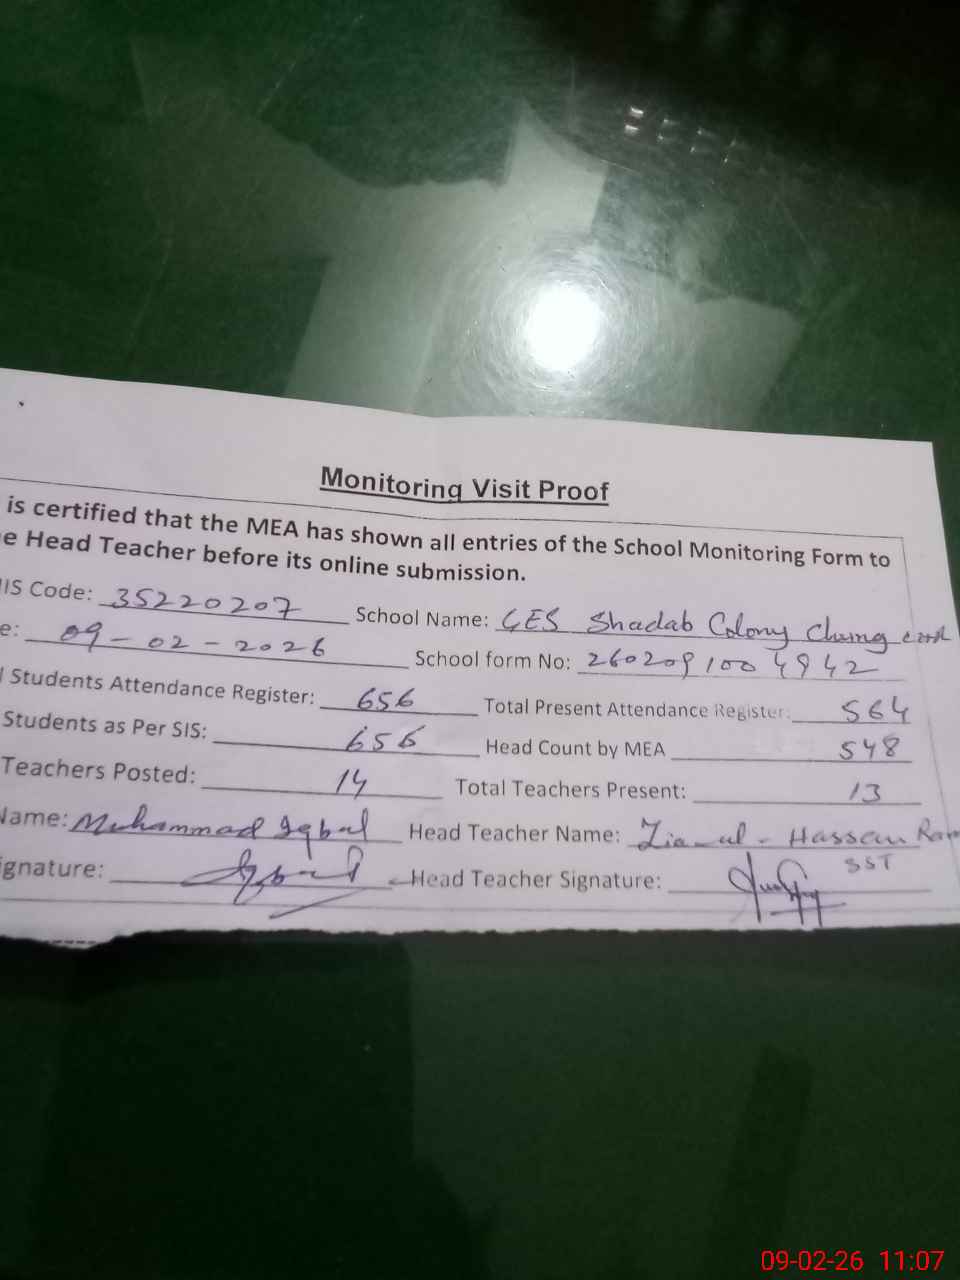 Monitoring Visit Proof
is certified that the MEA has shown all entries of the School Monitoring Form to
e Head Teacher before its online submission.
IIS Code: 35220207 School Name: GES Shadab Colony Chung
e: 09-02-2026 School form No: 2602091004942
l Students Attendance Register: 656 Total Present Attendance Register: 564
Students as Per SIS: 656 Head Count by MEA 548
Teachers Posted: 14 Total Teachers Present: 13
Name: Muhammad Iqbal Head Teacher Name: Zia-ul-Hassan
ignature: Head Teacher Signature: SST
09-02-26 11:07